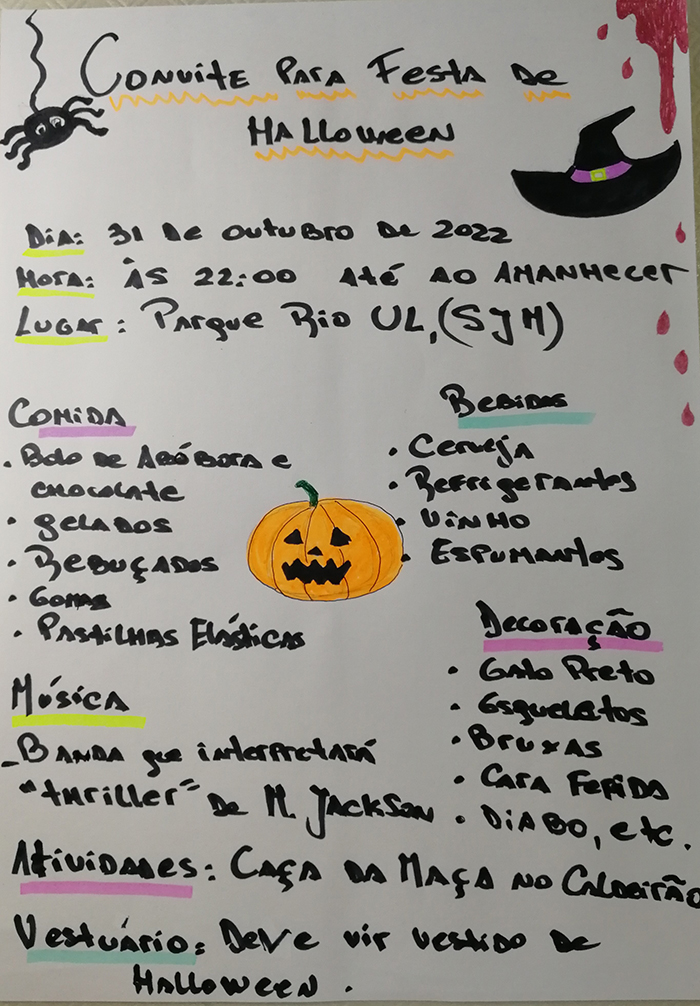 Convite Para Festa de
Halloween
Dia: 31 de outubro de 2022
Hora: Às 22:00 Até ao AMANHECER
Lugar: Parque Rio UL, (SJM)
Comida
• Bolo de Abóbora e
chocolate
• gelados
• Rebuçados
• Gomas
• Pastilhas Elásticas
Bebidas
• Cerveja
• Refrigerantes
• Vinho
• Espumantes
Decoração
• Gato Preto
• Esqueletos
• Bruxas
• Cara Ferida
• Diabo, etc.
Música
- Banda que interpretará
"thriller" de M. Jackson
Atividades: Caça da Maça no Caldeirão
Vestuário: Deve vir vestido de
Halloween.